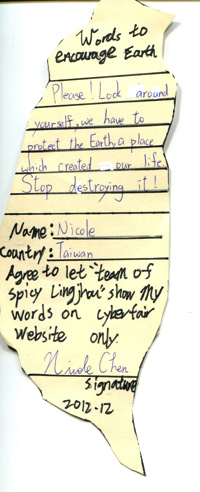 Words to
encourage Earth
Please! Look around
yourself, we have to
protect the Earth, a place
which created our life.
Stop destroying it!
Name: Nicole
Country: Taiwan
Agree to let "team of
spicy Lingjhou" show my
words on cyberfair
website only.
Nicole Chen
Signature
2012.12